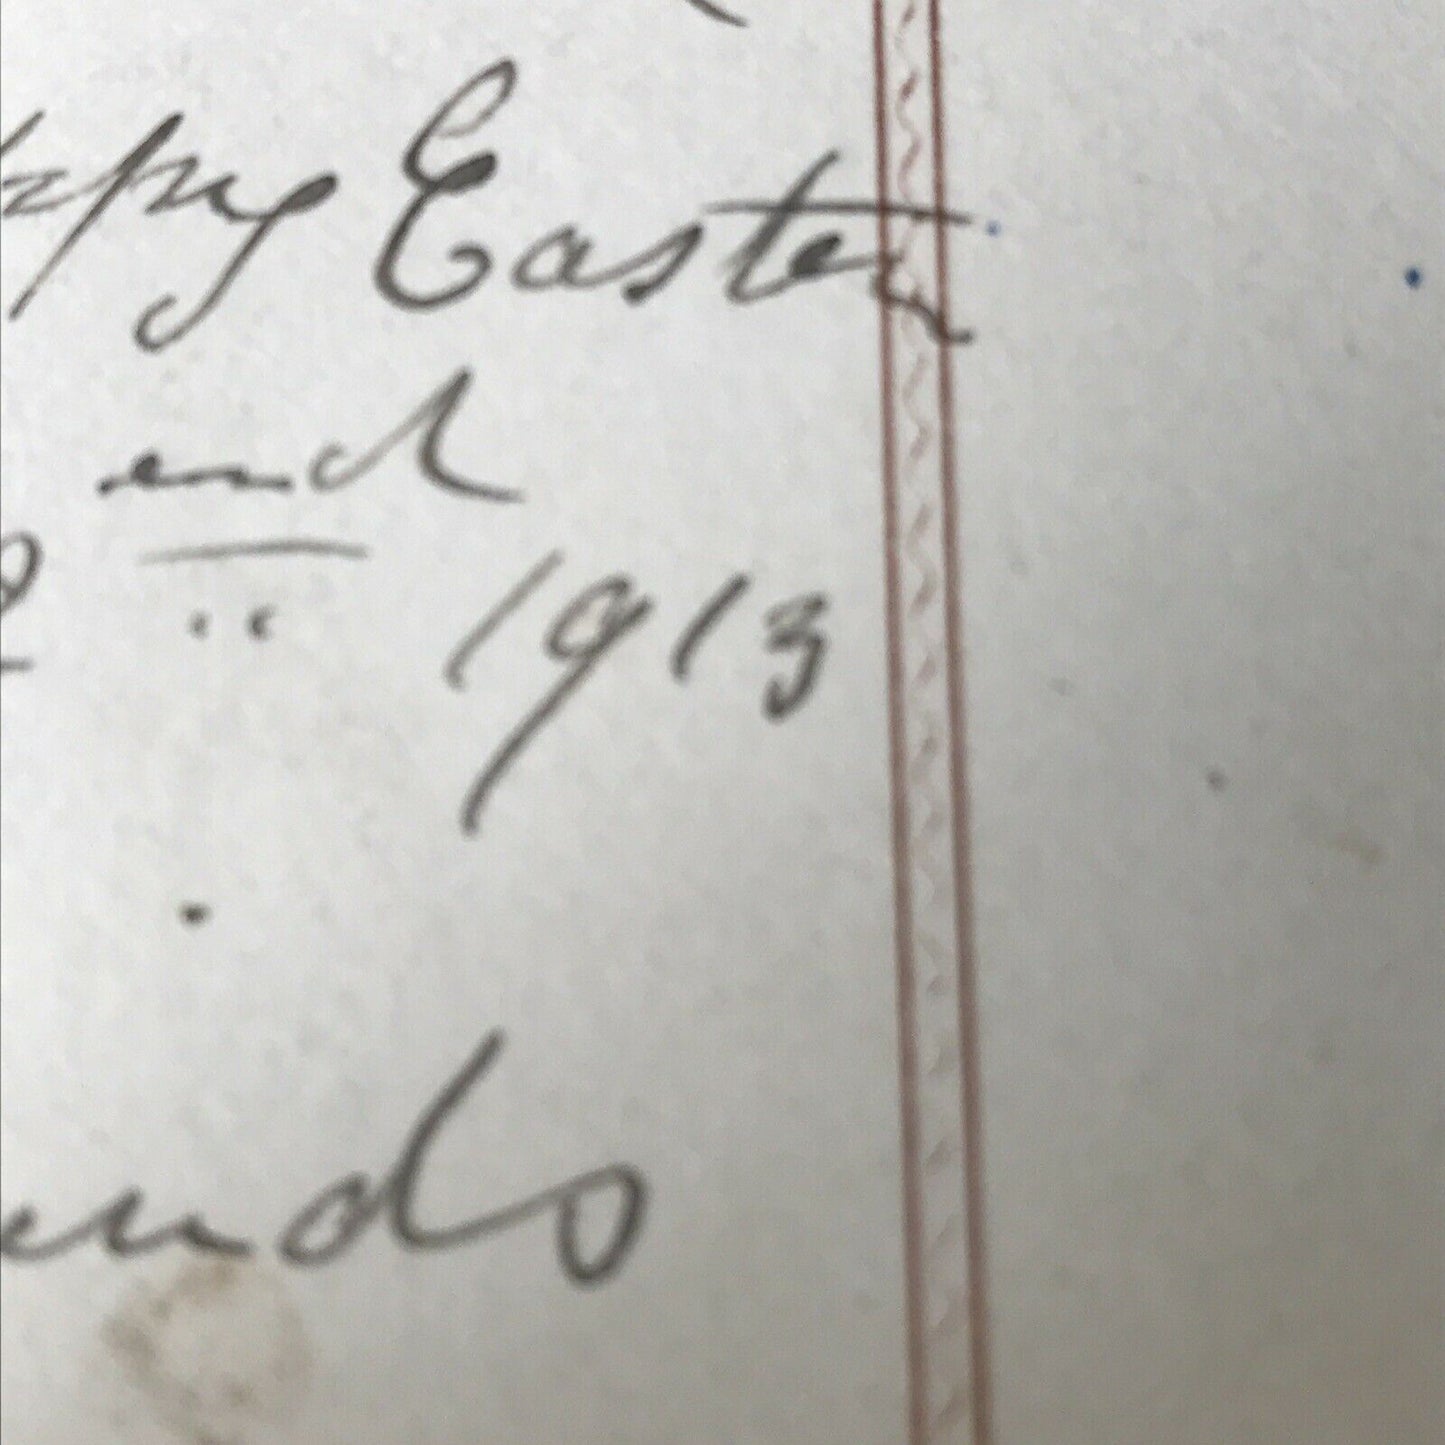 ppy Easter
end
2 1913
ends